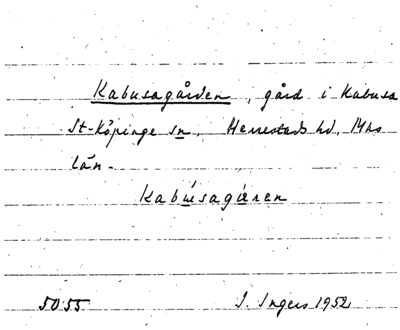 Kabusagården, gård i Kabusa
St-Köpinge sn, Herrestads hd, Mhs
län.
Kabúsagæ̀ren
5055 I. Ingers 1952